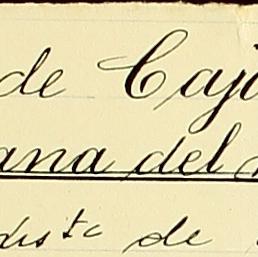 de Caj
ana del
dis.ta de